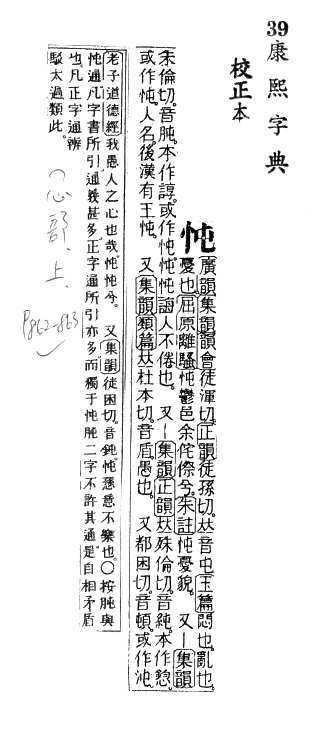 39
康熙字典
校正本
忳
廣韻集韻韻會徒渾切正韻徒孫切𠀤音屯玉篇悶也亂也
憂也屈原離騷忳鬱邑余侘傺兮朱註忳憂貌 又一集韻
朱倫切音肫本作諄或作忳忳忳誨人不倦也 又一集韻正韻𠀤殊倫切音純本作
或作忳人名後漢有王忳 又集韻類篇𠀤杜本切音盾愚也 又都困切音頓或作沌
老子道德經我愚人之心也哉忳忳兮 又集韻徒困切音鈍忳愻意不樂也○按肫與
忳通凡字書所引通義甚多正字通所引亦多而獨于忳肫二字不許其通是自相矛盾
也凡正字通辨
駁太過類此
(心部、上、
P862-863